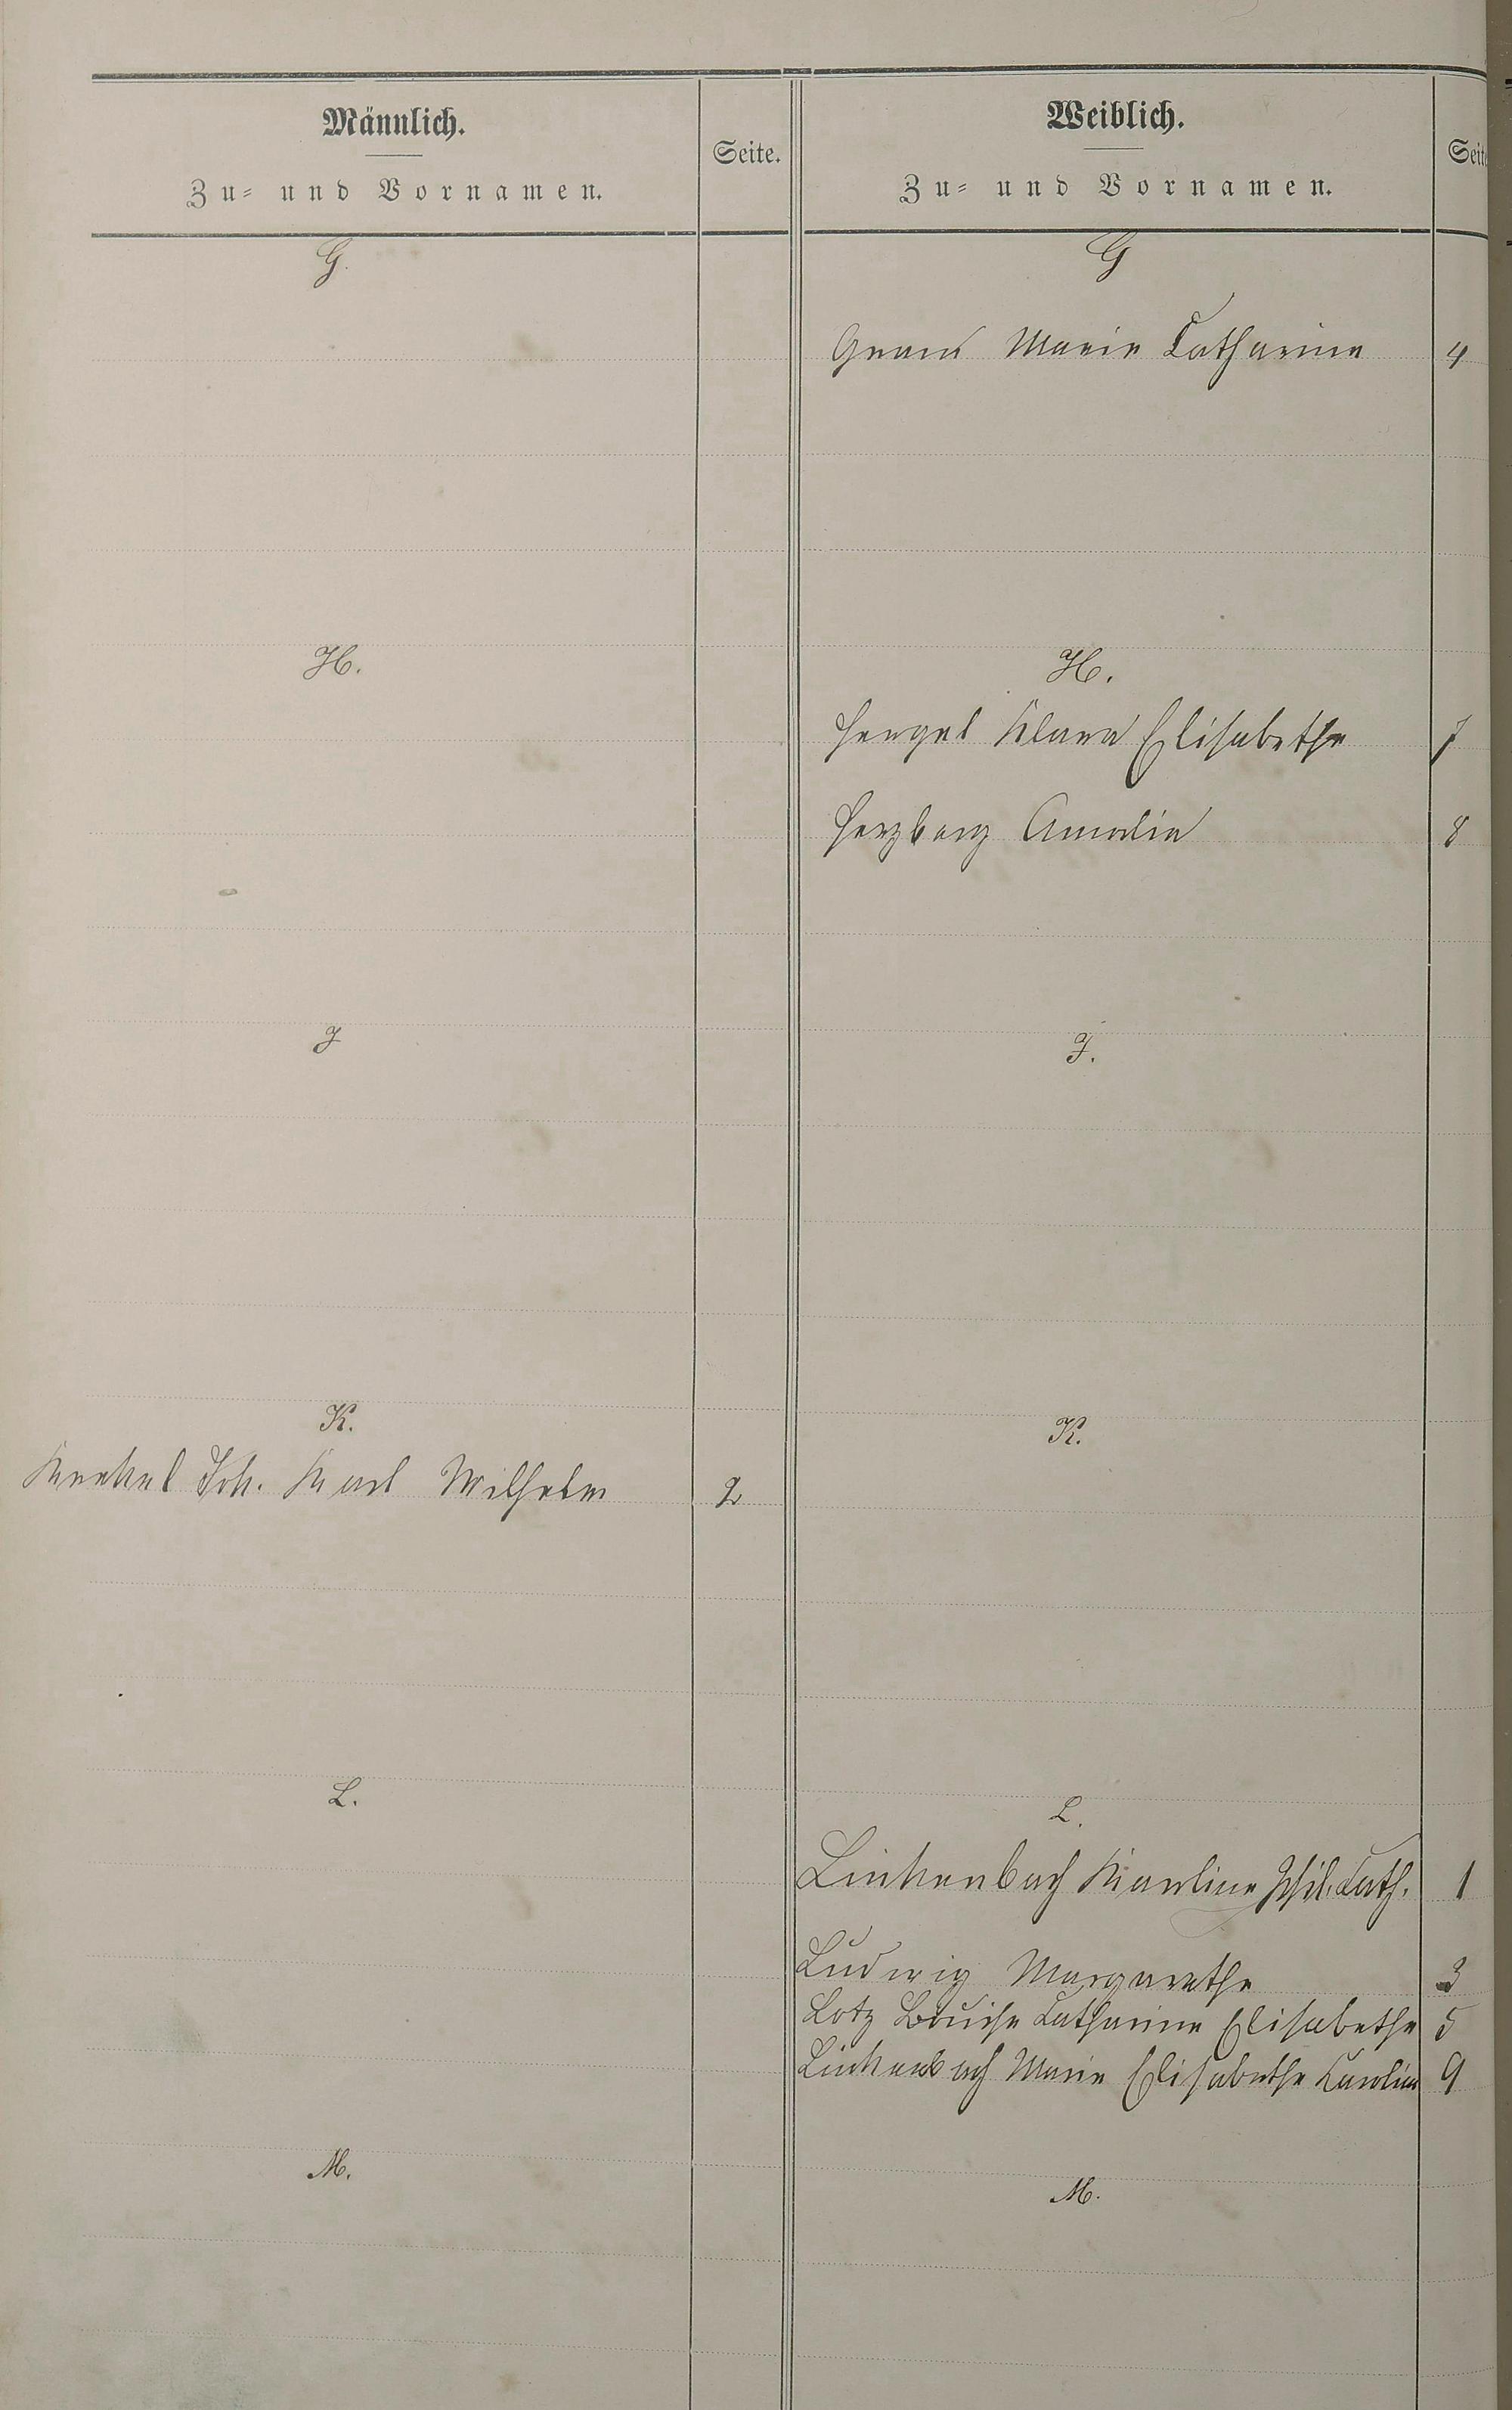 Männlich.
Zu- und Vornamen.
Seite.
Weiblich.
Zu- und Vornamen.
Seite
G.
G
Marie Catharina 4
H.
H.
Hengel Klara Elisabethe 7
Herzberg Amalia 8
J
J.
K.
K.
Joh. Karl Wilhelm 2
L.
L.
Linkenbach Karoline Phil. Cath. 1
Ludwig Margarethe 3
Lotz Louise Catharine Elisabethe 5
Linkenbach Marie Elisabethe Carolina 9
M.
M.